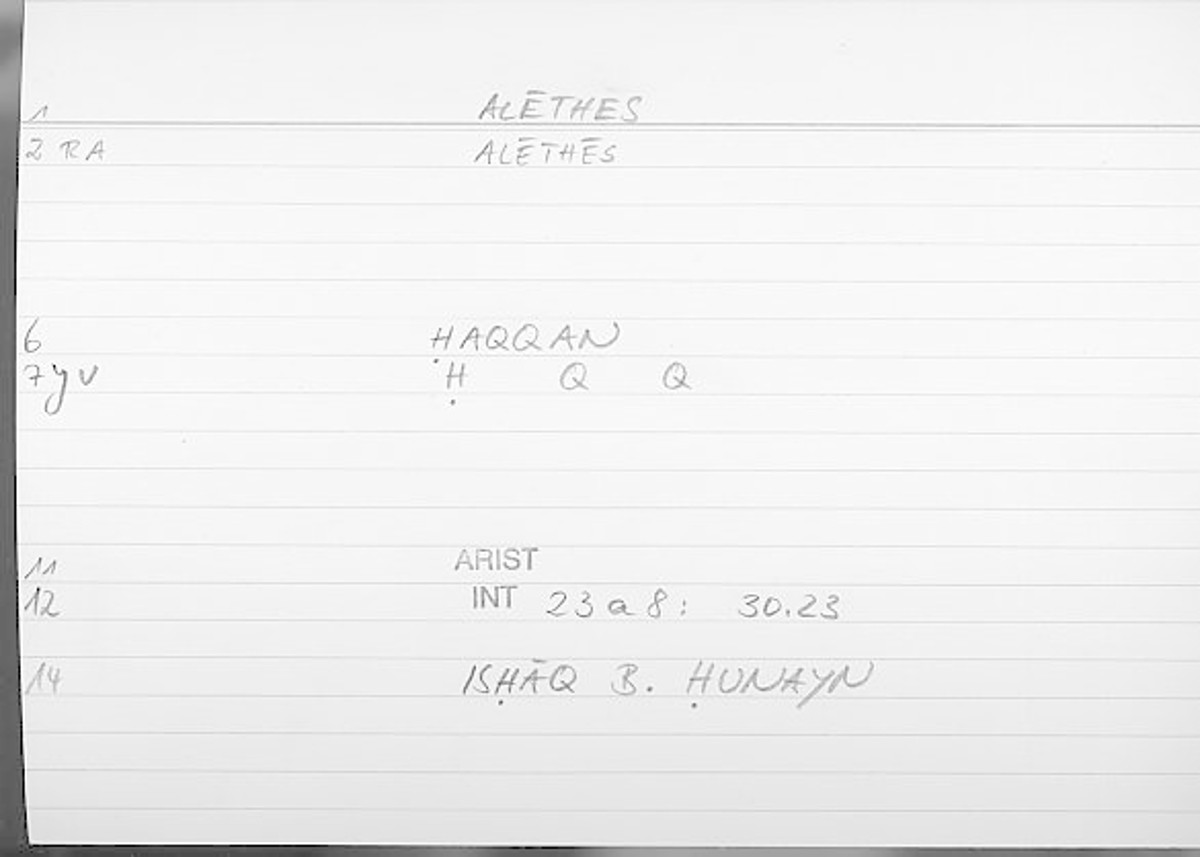 1 ALĒTHES
2 RA ALĒTHĒS
6 ḤAQQAN
7 y v Ḥ Q Q
11 ARIST
12 INT 23a8: 30.23
14 ISḤĀQ B. ḤUNAYN